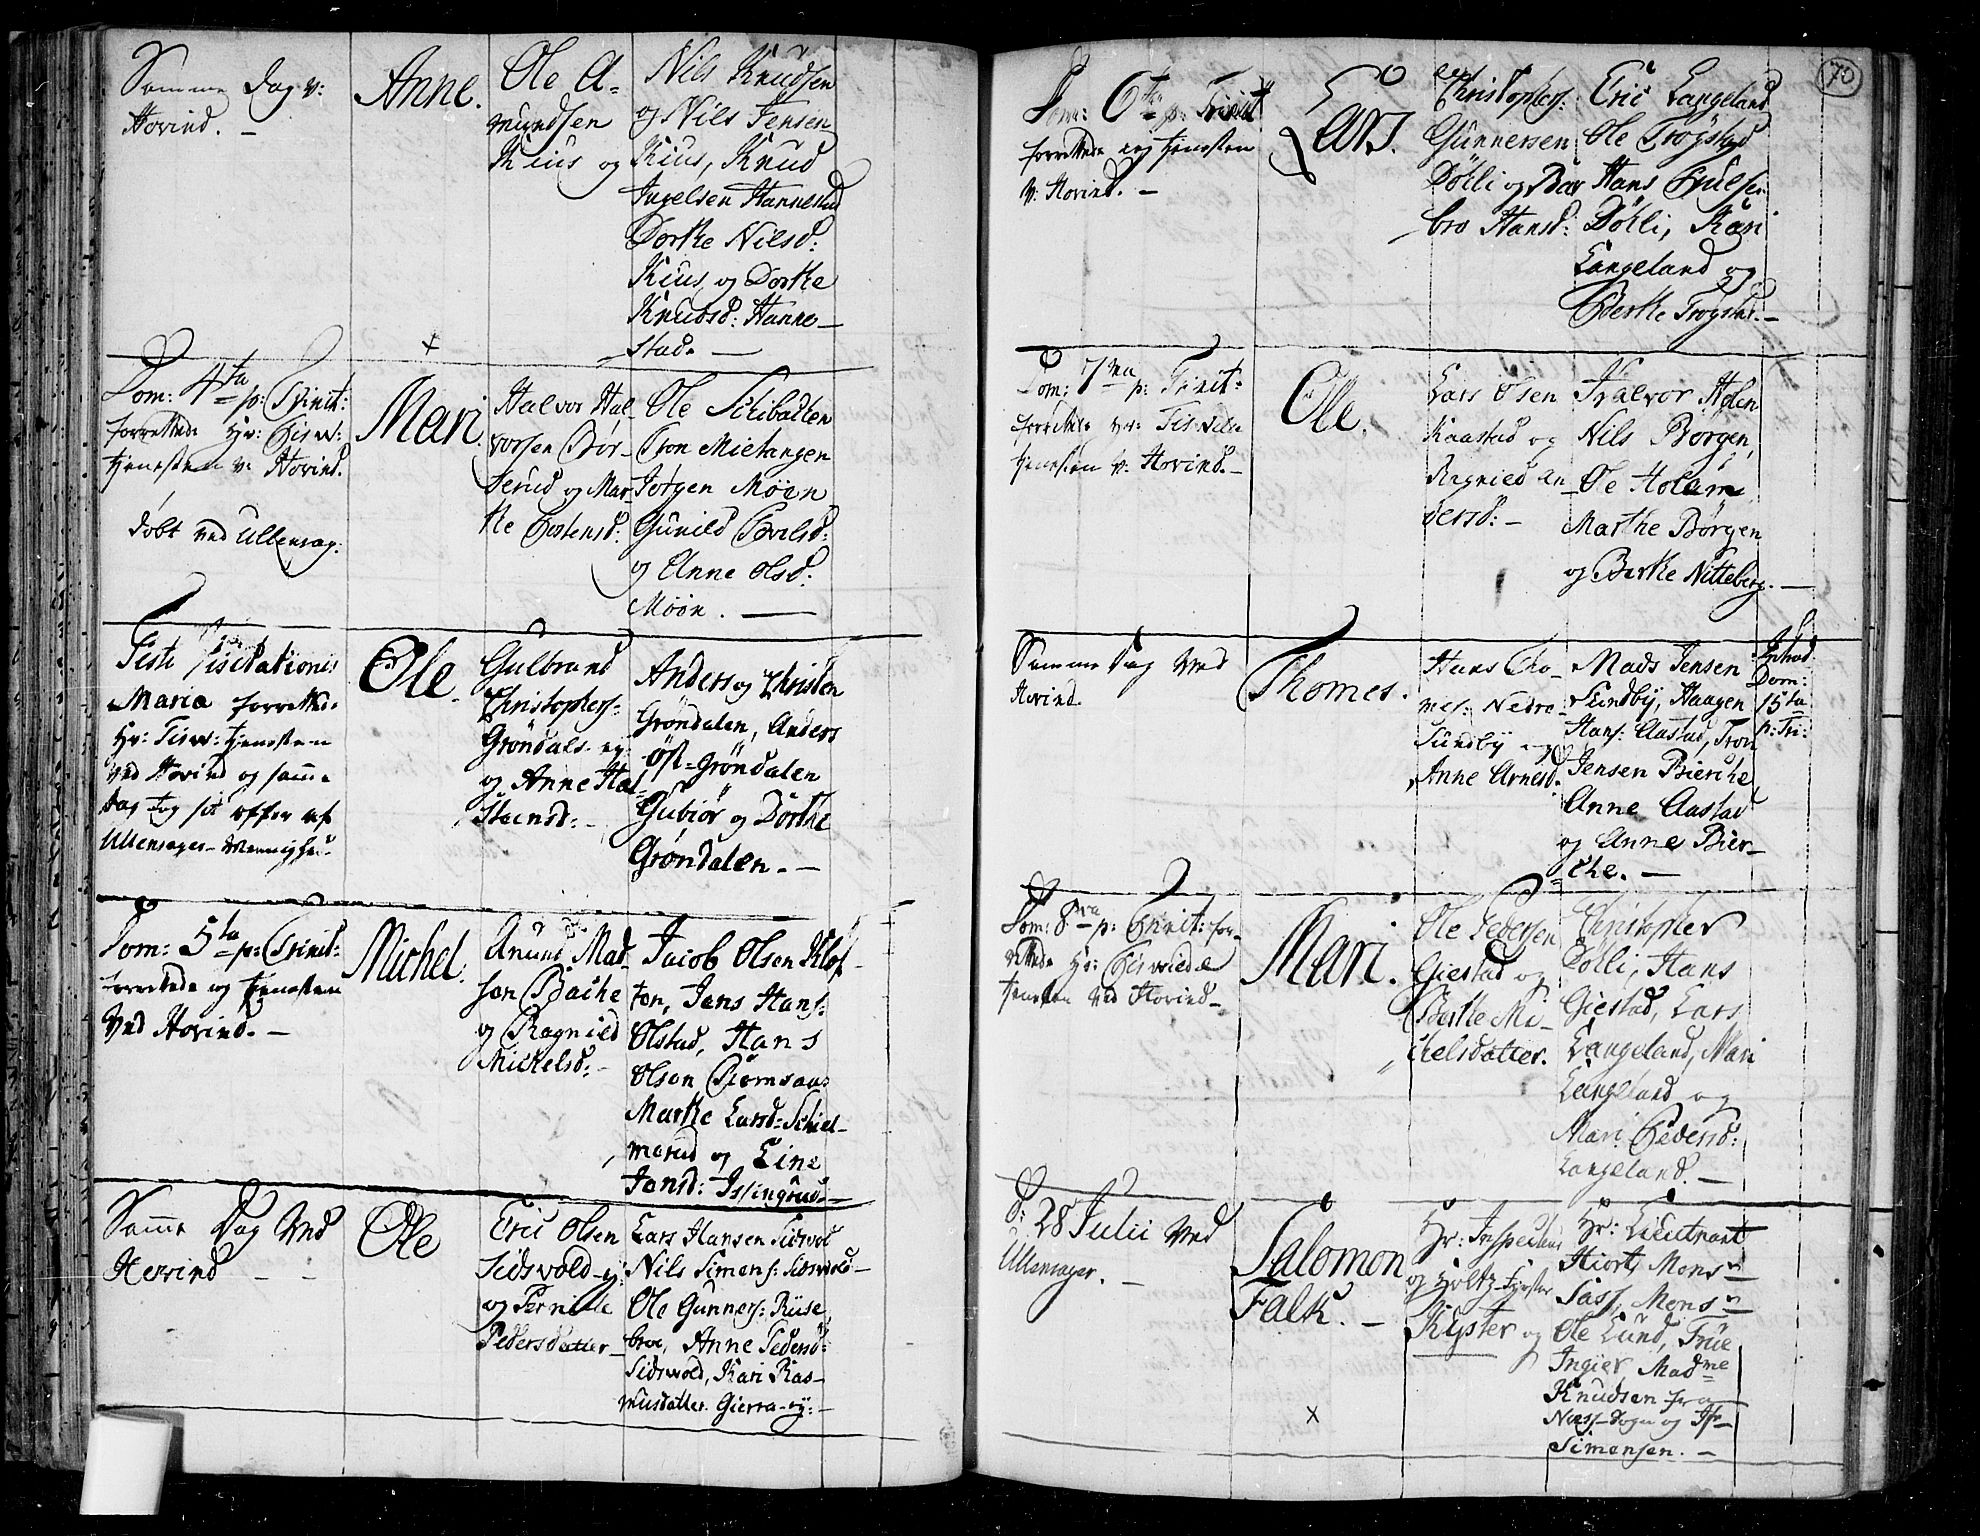 Samme Dag v:
Hovind. –
Anne.
Ole A-
mundsen
Kius og
Nils Knudsen
og Nils Jensen
Kius, Knud
Ingelsen Hannestad
Dorthe Nilsd:
Kius og Dorthe
Knudsd: Hanne-
stad. –
Dom: 4ta p: Trinit:
forrettede Hr: Tisw:
tjenesten v: Hovind.
døbt ved Ullensag:
Mari
Halvor Hal-
vorsen Bör-
serud og Mar-
the Tostensd:
Ole Schibacken
Tron Mietangen
Jörgen Möen
Gunild
og Anne Olsd:
Möön. –
Festi Visitationis
Mariæ forrettede
Hr: Tisw: tjenesten
ved Hovind og samme
dag tog sit offer af
Ullensagers Menighed.
Ole.
Gulbrand
Christophers:
Gröndals-ey:
og Anne Hal-
steensd: –
Anders og Christen
Gröndalen, Anders
Öst-Gröndalen
Gubiör og Dorthe
Gröndalen. –
Dom: 5ta p: Trinit:
forrettede og tjenesten
ved Hovind. –
Michel.
Amund Mad-
sen Bache
og Ragnild
Mickelsd: –
Jacob Olsen Klöf-
ton, Jens Hans:
Olstad, Hans
Olsen
Marthe Larsd: Schiel-
merud og Line
Jensd: Islingrud –
Samme Dag ved
Hovind –
Ole
Eric Olsen
Sidsvold-ey:
og Pernille
Pedersdatter –
Lars Hansen Sidsvol
Nils Simens: Sidsvold –
Ole Gunners: Riise
broe, Anne Pedersd:
Sidsvold, Kari Ras-
musdatter Gierra-ey: –
70
Dom: 6te p: Trinit
forrettede ieg tjenesten
v: Hovind. –
Lars.
Christophers:
Gunnersen
Dölli og Bar-
bro Hansd:
Eric Langeland
Ole Trögstad
Hans
Dölli, Kari
Langeland og
Berthe Trogstad. –
Dom: 7ma p: Trinit:
forrettede Hr: Tiswelle
tjenesten v: Hovind. –
Ole.
Lars Olsen
Kaastad og
Ragnild An-
dersd: –
Halvor Holen
Nils Borgen,
Ole Holum
Marthe Börgen
og Berthe Nitteberg. –
Samme Dag ved
Hovind.
Thomes.
Hans Tho-
mes: Nedre-
Sundby og
Anne Arnesd:
Mads Jensen
Sundby, Haagen
Hans: Aastad, Tron
Jensen Bierche,
Anne Aastad
og Anne Bier-
che. –
Introd:
Dom:
15ta
p: Tri:
Dom: 8va p: Trinit: for-
rettede Hr: Tiswelle
tjenesten ved Hovind –
Mari.
Ole Pedersen
Giestad og
Berthe Mi-
chelsdatter.
Christopher
Dölli, Hans
Giestad, Lars
Langeland, Mari
Langeland og
Mari Pedersd:
Langeland. –
D: 28 Julii ved
Ullensager. –
Salomon
Falk. –
Hr: Inspecteur
og Holtz-Förster
Kyster og
Hr: Lieutnant
Hiort, Mons:
Sass, Mons:
Ole Lund, Frue
Ingier, Madme
Knudsen fra
Næss-Sogn og Jfr
Simensen. –